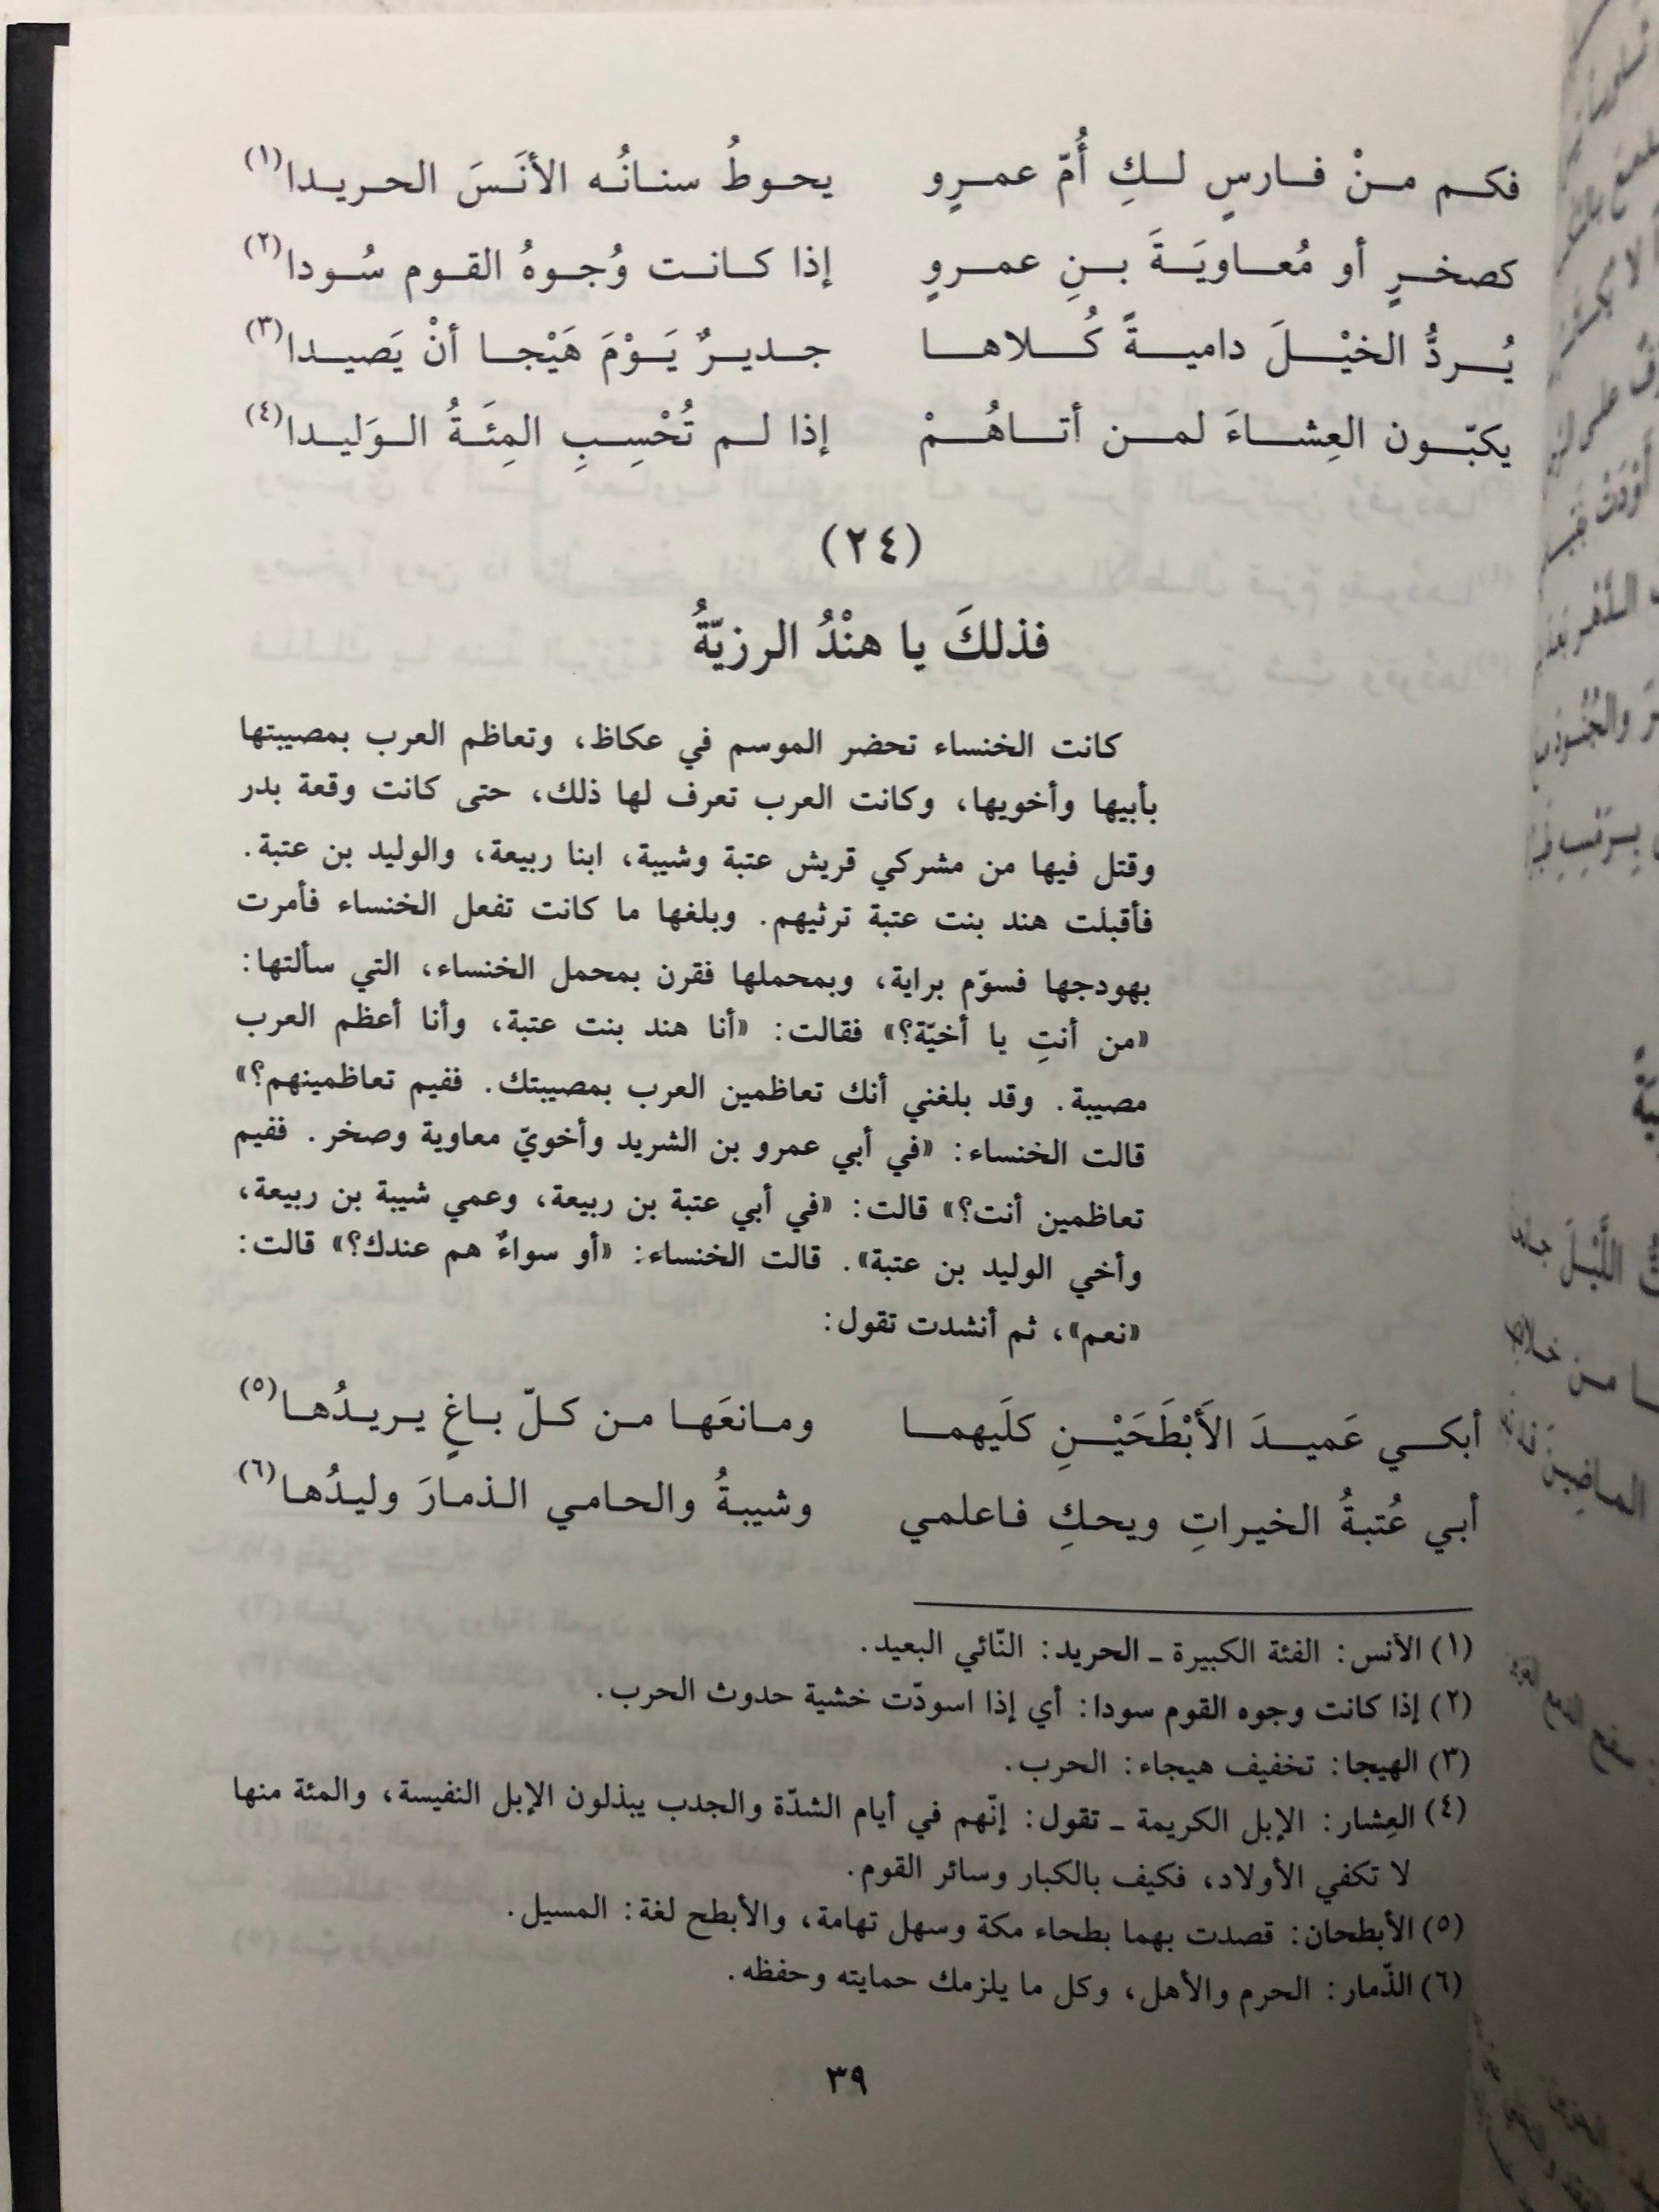 فكم منْ فارسٍ لكِ أُمّ عمرٍو يحوطُ سنانُه الأنَسَ الحريدا(١)
كصخرٍ أو مُعاويَةَ بنِ عمروٍ إذا كانت وُجوهُ القوم سُودا(٢)
يُردُّ الخيْلَ داميةً كُلاها جديرٌ يَوْمَ هَيْجا أنْ يَصيدا(٣)
يكبّون العِشاءَ لمن أتاهُمْ إذا لم تُحْسِبِ المِئَةُ الوَليدا(٤)
(٢٤)
فذلكَ يا هنْدُ الرزيّةُ
كانت الخنساء تحضر الموسم في عكاظ، وتعاظم العرب بمصيبتها
بأبيها وأخويها، وكانت العرب تعرف لها ذلك، حتى كانت وقعة بدر
وقتل فيها من مشركي قريش عتبة وشيبة، ابنا ربيعة، والوليد بن عتبة.
فأقبلت هند بنت عتبة ترثيهم. وبلغها ما كانت تفعل الخنساء فأمرت
بهودجها فسوّم براية، وبمحملها فقرن بمحمل الخنساء، التي سألتها:
«من أنتِ يا أخيّة؟» فقالت: «أنا هند بنت عتبة، وأنا أعظم العرب
مصيبة. وقد بلغني أنك تعاظمين العرب بمصيبتك. ففيم تعاظمينهم؟»
قالت الخنساء: «في أبي عمرو بن الشريد وأخويّ معاوية وصخر. ففيم
تعاظمين أنت؟» قالت: «في أبي عتبة بن ربيعة، وعمي شيبة بن ربيعة،
وأخي الوليد بن عتبة». قالت الخنساء: «أو سواءٌ هم عندك؟» قالت:
«نعم»، ثم أنشدت تقول:
أبكي عَميدَ الأَبْطَحَيْنِ كلَيهما ومانعَها من كلّ باغٍ يريدُها(٥)
أبي عُتبةُ الخيراتِ ويحكِ فاعلمي وشيبةُ والحامي الذمارَ وليدُها(٦)
(١) الأنس: الفئة الكبيرة ـ الحريد: النّائي البعيد.
(٢) إذا كانت وجوه القوم سودا: أي إذا اسودّت خشية حدوث الحرب.
(٣) الهيجا: تخفيف هيجاء: الحرب.
(٤) العِشار: الإبل الكريمة ـ تقول: إنّهم في أيام الشدّة والجدب يبذلون الإبل النفيسة، والمئة منها
لا تكفي الأولاد، فكيف بالكبار وسائر القوم.
(٥) الأبطحان: قصدت بهما بطحاء مكة وسهل تهامة، والأبطح لغة: المسيل.
(٦) الذّمار: الحرم والأهل، وكل ما يلزمك حمايته وحفظه.
٣٩